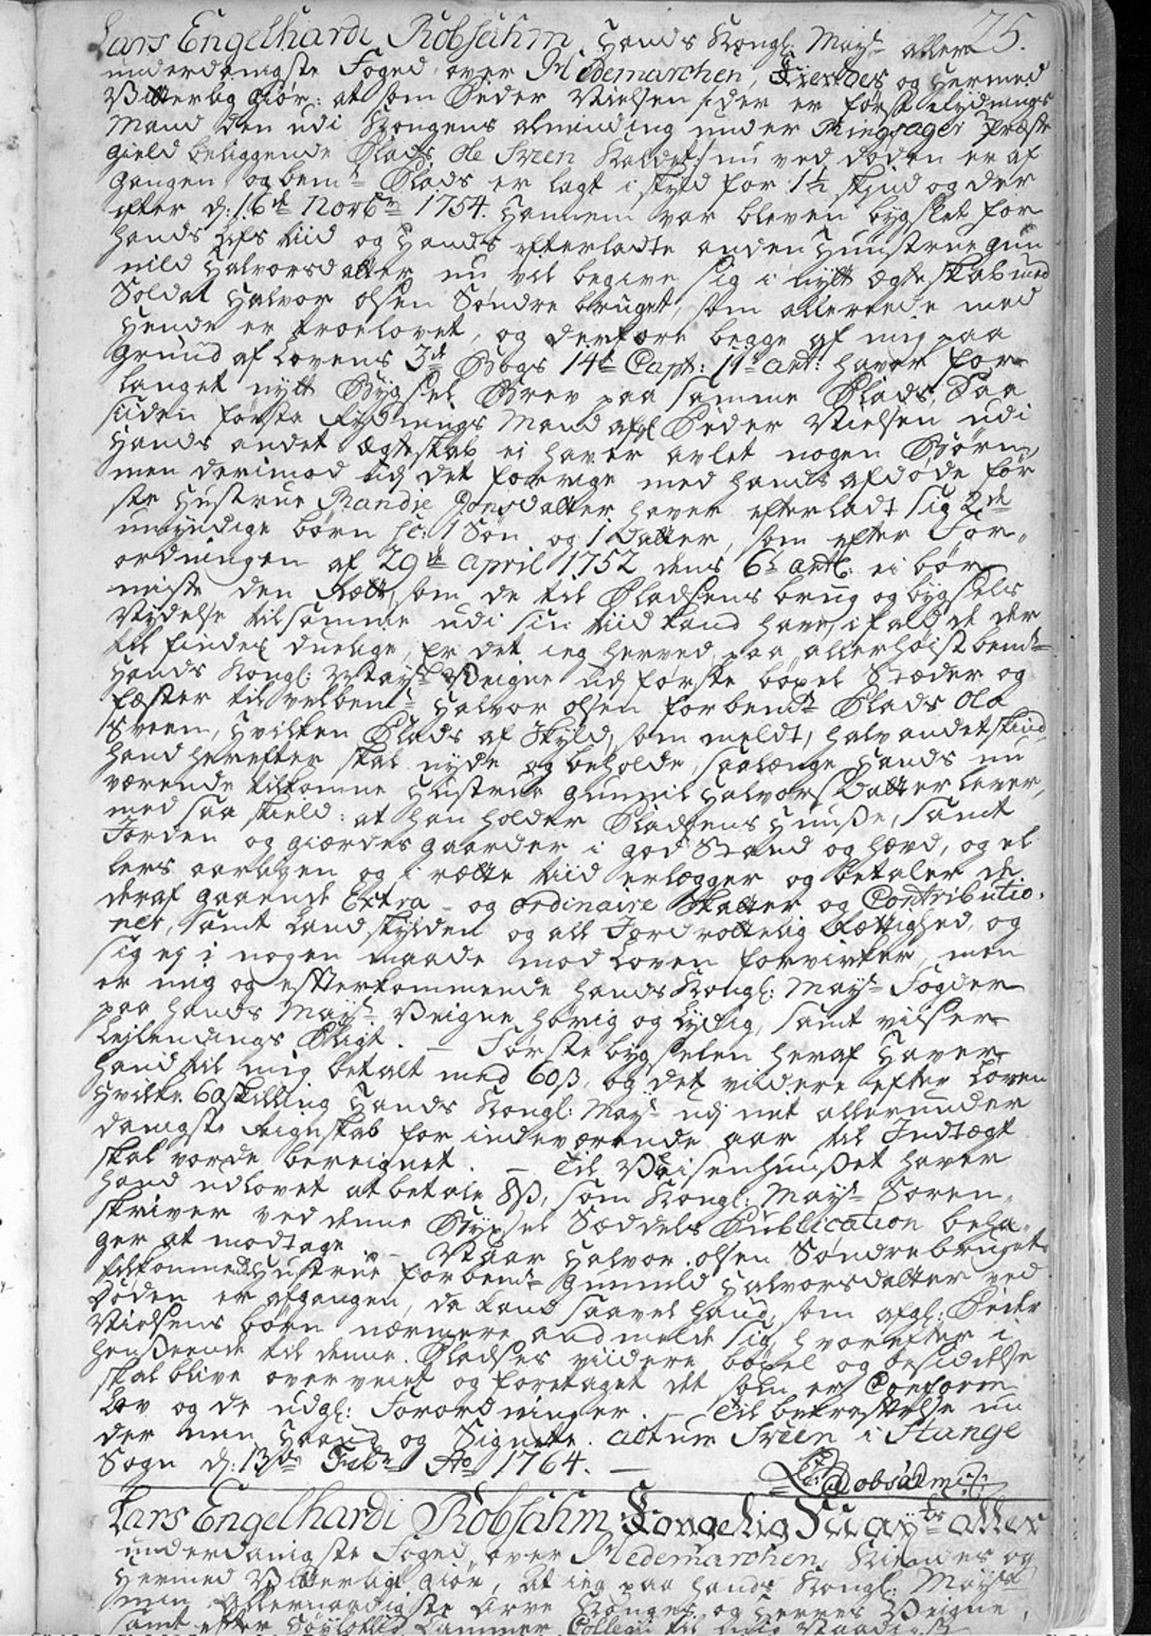 75.
Lars Engelhardt Robsahm, Hands Kongl: Mayts aller
underdanigste Foged over Hedemarchen, Kiendes og Hermed
Vitterlig giør: at som Peder Nielsen /: der er første Rydnings
Mand den udi Kongens Alminding under Ringsager Præste
gield beliggende Plads, Ole Sveen kaldet :/ nu ved døden er af
gangen og bemte Plads er lagt i skyld for 1½ skind og der
efter d: 16de Novbr 1754. Hannem var bleven bygslet for
hands Lifs tiid og Hands efterladte anden Hustrue Gun
nild Halvorsdatter nu vil begive sig i nytt ægteskab med
Soldat Halvor Olsen Søndre bruget, som allerede med
Hende er troelovet, og derfore begge af mig paa
Grund af Lovens 3de Bogs 14de Capt: 1te art: haver for-
langet nytt Bygsel Brev paa samme Plads, Saa
siden første Rydnings Mand afgl Peder Nielsen udi
Hands andet Ægteskab ei haver avlet nogen Børn,
men derimod udj det forrige med hands afdøde før
ste Hustrue Randie Jonsdatter haver efterladt sig 2de
umyndige børn sc: 1 Søn og 1 Datter, som efter For-
ordningen af 29de April 1752 dens 6te artl: ei bør
miste den Rett, som de til Pladsens brug og bygsels
Nydelse tilsamme udi sin tiid kand have, ifald de der
til findes duelige, Er det ieg herved paa allerhøist bemte
Hands Kongl: Mayts Veigne udj første bøxel Stæder og
fæster til velbemte Halvor Olsen forbemte Plads Ola
Sveen, Hvilken Plads af Skyld, som meldt, halvandet skind
hand herefter skal nyde og beholde, saalænge Hands nu
værende tilkomne Hustrue Gunnil Halvors Datter lever,
med saa skield: at han holder Pladsens Huuße, samt
Jorden og giærdes gaarder i god Stand og hævd, og el
lers aarligen og i rætte tiid erlægger og betaler de
deraf gaaende Extra- og ordinaire Skatter og Contributio-
ner, samt Landskylden og all Jorddrottelig Rættighed, og
sig ej i nogen maade mod Loven forvirker, men
er mig og efterkommende hands Kongl: Mayts Fogder
paa hands Mayts Veigne hørig og Lydig, samt viiser
Leilendings Pligt. — Første bygselen heraf Haver
hand til mig betalt med 60 ß, og det viidere efter Loven
Hvilke 60 Skilling Hands Kongl: Mayt udj mit allerunder
danigste Reignskab for indeværende aar til Indtægt
skal vorde bereignet. — Til Vaisenhuußet haver
Hand udlovet at betale 8 ß, som Kongl: Mayts Soren-
skriver ved denne Bygsel Seddels Publication beha-
ger at modtage — Naar Halvor Olsen Søndrebrugets
tilkomne Hustrue forbemte Gunnild Halvorsdatter ved
Døden er afgangen, da kand saavel hand, som afgl: Peder
Nielsens børn nærmere andmelde sig, hvorefter i
henseende til denne Pladses viidere bøxel og besiddelse
skal blive overveiet og foretaget det som er Conform
Lov og de udgl: Forordninger. — Til bekræftelse un
der min Haand og Signete. Actum Sveen i Stange
Sogn d: 13de Febr Ao 1764. —
L: Robsahm
Lars Engelhardt Robsahm Kongelig Mayts aller
underdanigste Foged over Hedemarchen, Kiendes og
Hermed Vitterligt giør, At ieg paa hands Kongl: Mayts
min Allernaadigste Arve Konges og Herres Veigne,
samt efter Høylovl: Cammer Collegii til mig